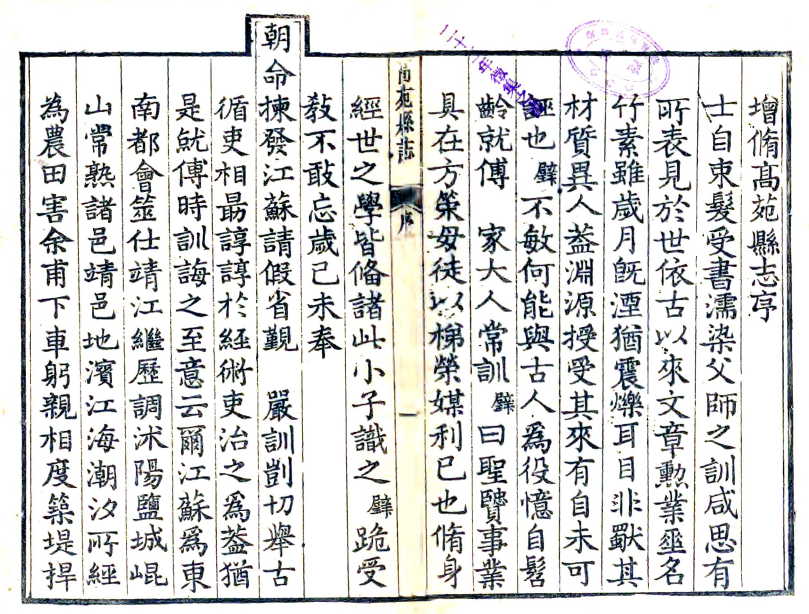 增脩高苑縣志序
士自束髮受書濡染父師之訓咸思有
所表見於世依古以來文章勲業垂名
竹素雖歲月旣湮猶震爍耳目非獸其
材質異人葢淵源授受其來有自未可
誣也璧不敏何能與古人爲役憶自髫
齡就傅家大人常訓璧曰聖賢事業
具在方䇿毋徒以梯榮媒利已也脩身
高苑縣誌 序 一
經世之學皆偹諸此小子識之璧跪受
敎不敢忘歲己未奉
朝命揀發江蘇請假省覲嚴訓剴切舉古
循吏相朂諄諄於經術吏治之爲葢猶
是就傅時訓誨之至意云爾江蘇爲東
南都會筮仕靖江繼歷調沭陽鹽城崐
山常熟諸邑靖邑地濱江海潮汐所經
為農田害余甫下車躬親相度築堤捍